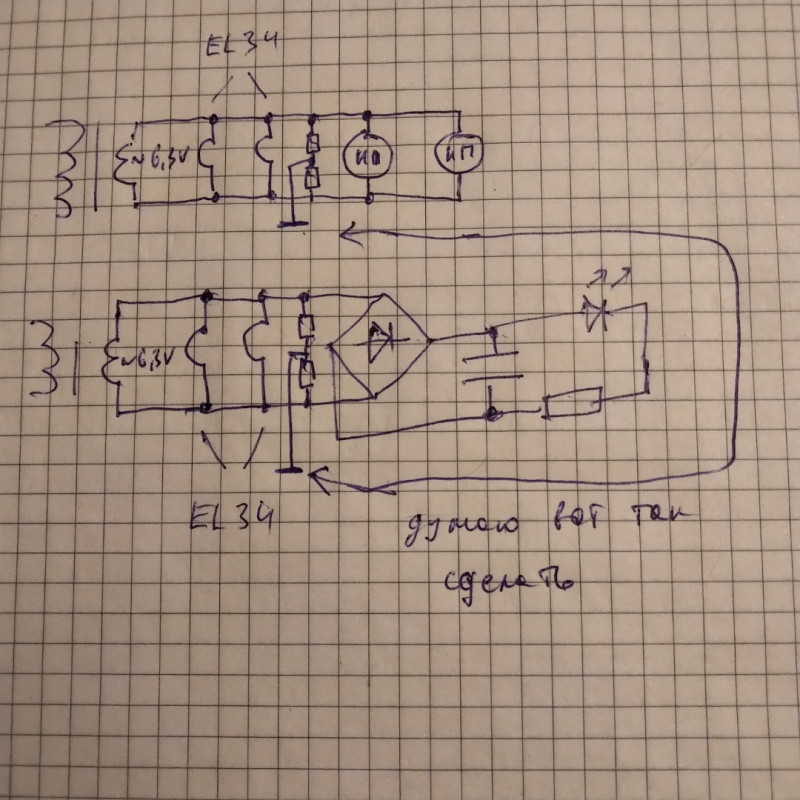 EL34
~6,3V
ИП
~6,3V
EL34
думаю вот так
сделать